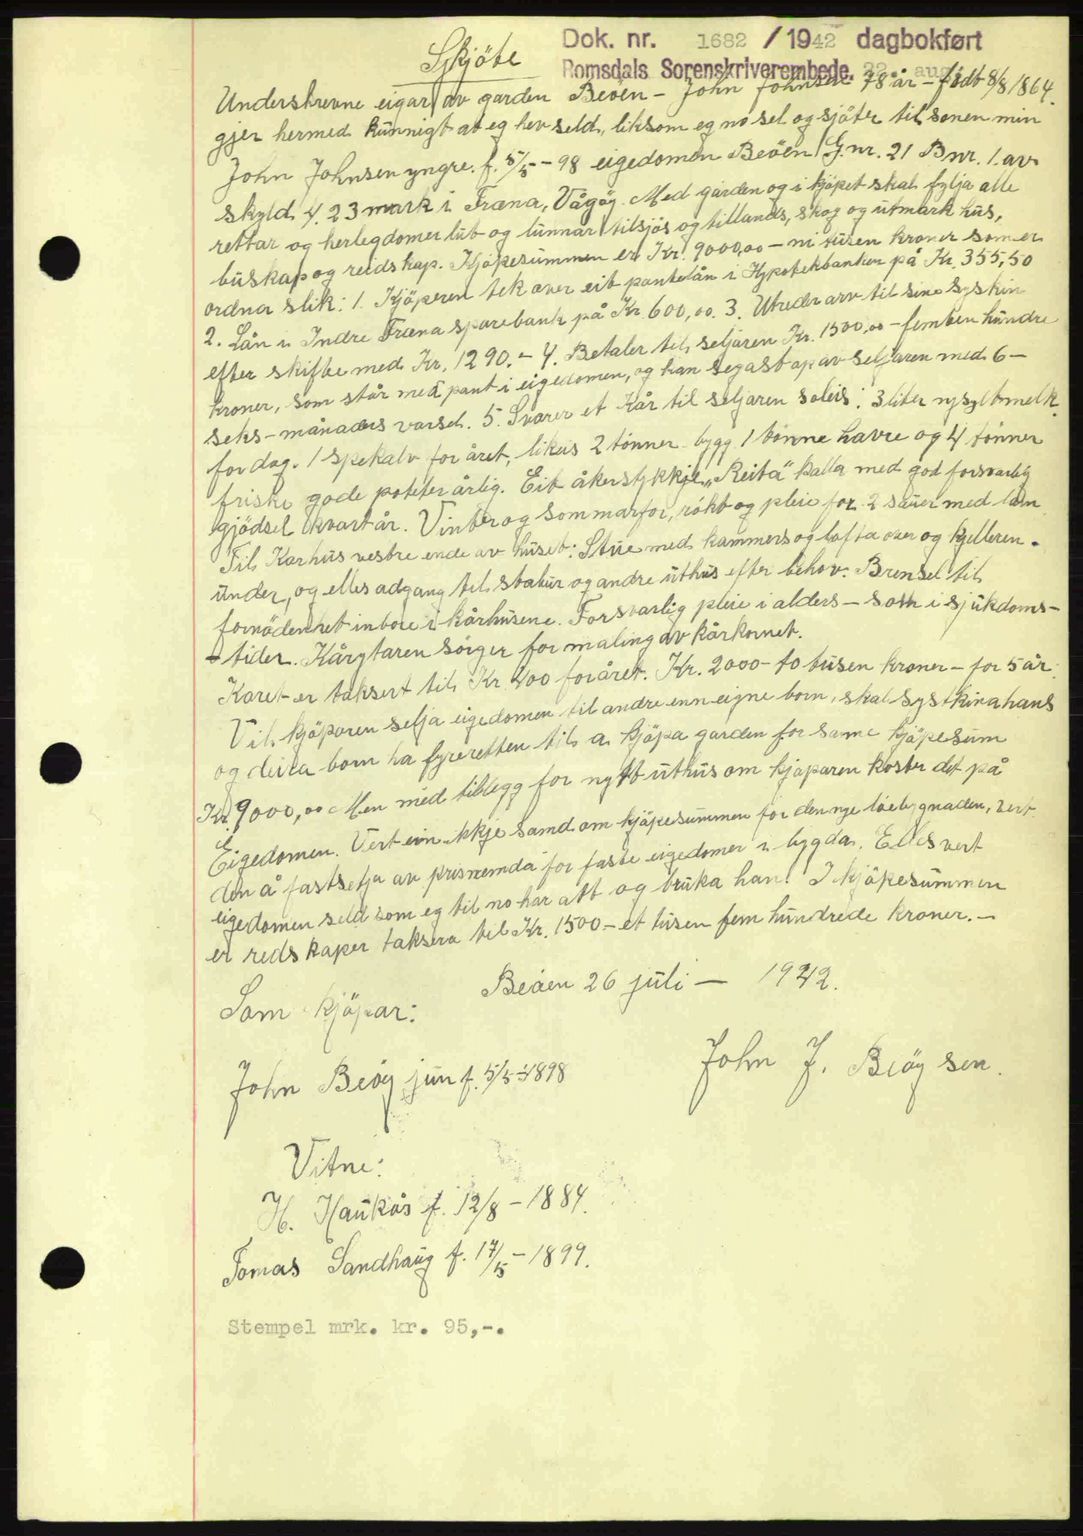 Skjöte
Dok. nr. 1682 / 1942 dagbokført
Romsdals Sorenskriverembede, 22. aug
Underskrevne eigar av garden Beöen - John Johnsen 78 år - født 8/8 1864.
gjer hermed kunnigt at eg hev seld, liksom eg no sel og sjöter til sonen min
John Johnsen yngre. f. 5/5 - 98 eigedomen Beöen G.nr. 21 Bnr. 1. av
skyld 4.23 mark i Fræna, Vågöy. Med garden og i kjöpet skal fylja alle
rettar og herlegdomer lut og lunnar tilsjös og tillands, skog og utmark hus,
buskap og reidskap. Kjöpesummen er Kr. 9000,00 - ni tusen kroner som er
ordna slik: 1. Kjöperen tek over eit pantelån i Hypotekbanken på Kr. 355,50
2. Lån i Indre Fræna sparebank på Kr. 600,00. 3. Utreder arv til sine syskin
efter skifte med Kr. 1290.- 4. Betaler til seljaren Kr. 1500,00 - femten hundre
kroner, som står med pant i eigedomen, og kan segast op av seljaren med 6 -
seks - månaders varsel. 5. Svarer et Kår til seljaren soleis: 3 liter nysylt melk
for dag. 1 spekalv for året, likeis 2 tönner bygg 1 tönne havre og 4 tönner
friske gode poteter årlig. Eit åkerstykkje "Reita" kalla med god forsvarlig
gjödsel kvart år. Vinter og sommarfor, rökt og pleie for 2 sauer med lam.
Til Karhus vestre ende av huset: Stue med kammers og lofta over og kjelleren
under, og elles adgang til stabur og andre uthus efter behov. Brensel til
fornödenhet inbore i kårhusene. Forsvarlig pleie i alders - som i sjukdoms-
- tider. Kårytaren sörger for maling av kårkornet.
Karet er taksert til Kr. 400 for året. Kr. 2000 - to tusen kroner - for 5 år.
Vil kjöparen selja eigedomen til andre enn eigne born, skal syskina hans
og deira born ha fyreretten til a kjöpa garden for same kjöpesum
Kr. 9000,00 Men med tillegg for nytt uthus om kjöparen koster det på
Eigedomen. Vert ein ikkje samd om kjöpesummen for den nye löebygnaden, vert
den å fastsetja av prisnemda for faste eigedomer i bygda. Elles vert
eigedomen seld som eg til no har att og bruka han. I kjöpesummen
er redskaper taksera til Kr. 1500 - et tusen fem hundrede kroner. -
Beöen 26 juli - 1942.
Som kjöpar:
John J. Beöy sen.
John Beöy jun f. 5/5 - 1898
Vitne:
H. Haukås f. 12/8 - 1884.
Tomas Sandhaug f. 17/5 - 1899.
Stempel mrk. kr. 95,-.